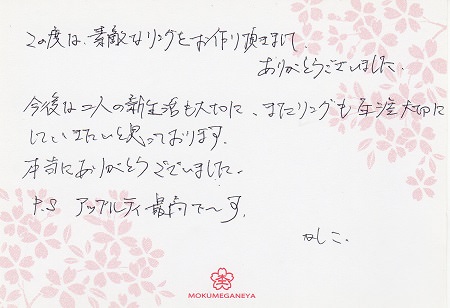 この度は、素敵なリングをお作り頂きまして、
ありがとうございました。
今後は二人の新生活も大切に、またリングも一生大切に
していきたいと思っております。
本当にありがとうございました。
P.S アップルティ最高で〜す。
かしこ。
MOKUMEGANEYA